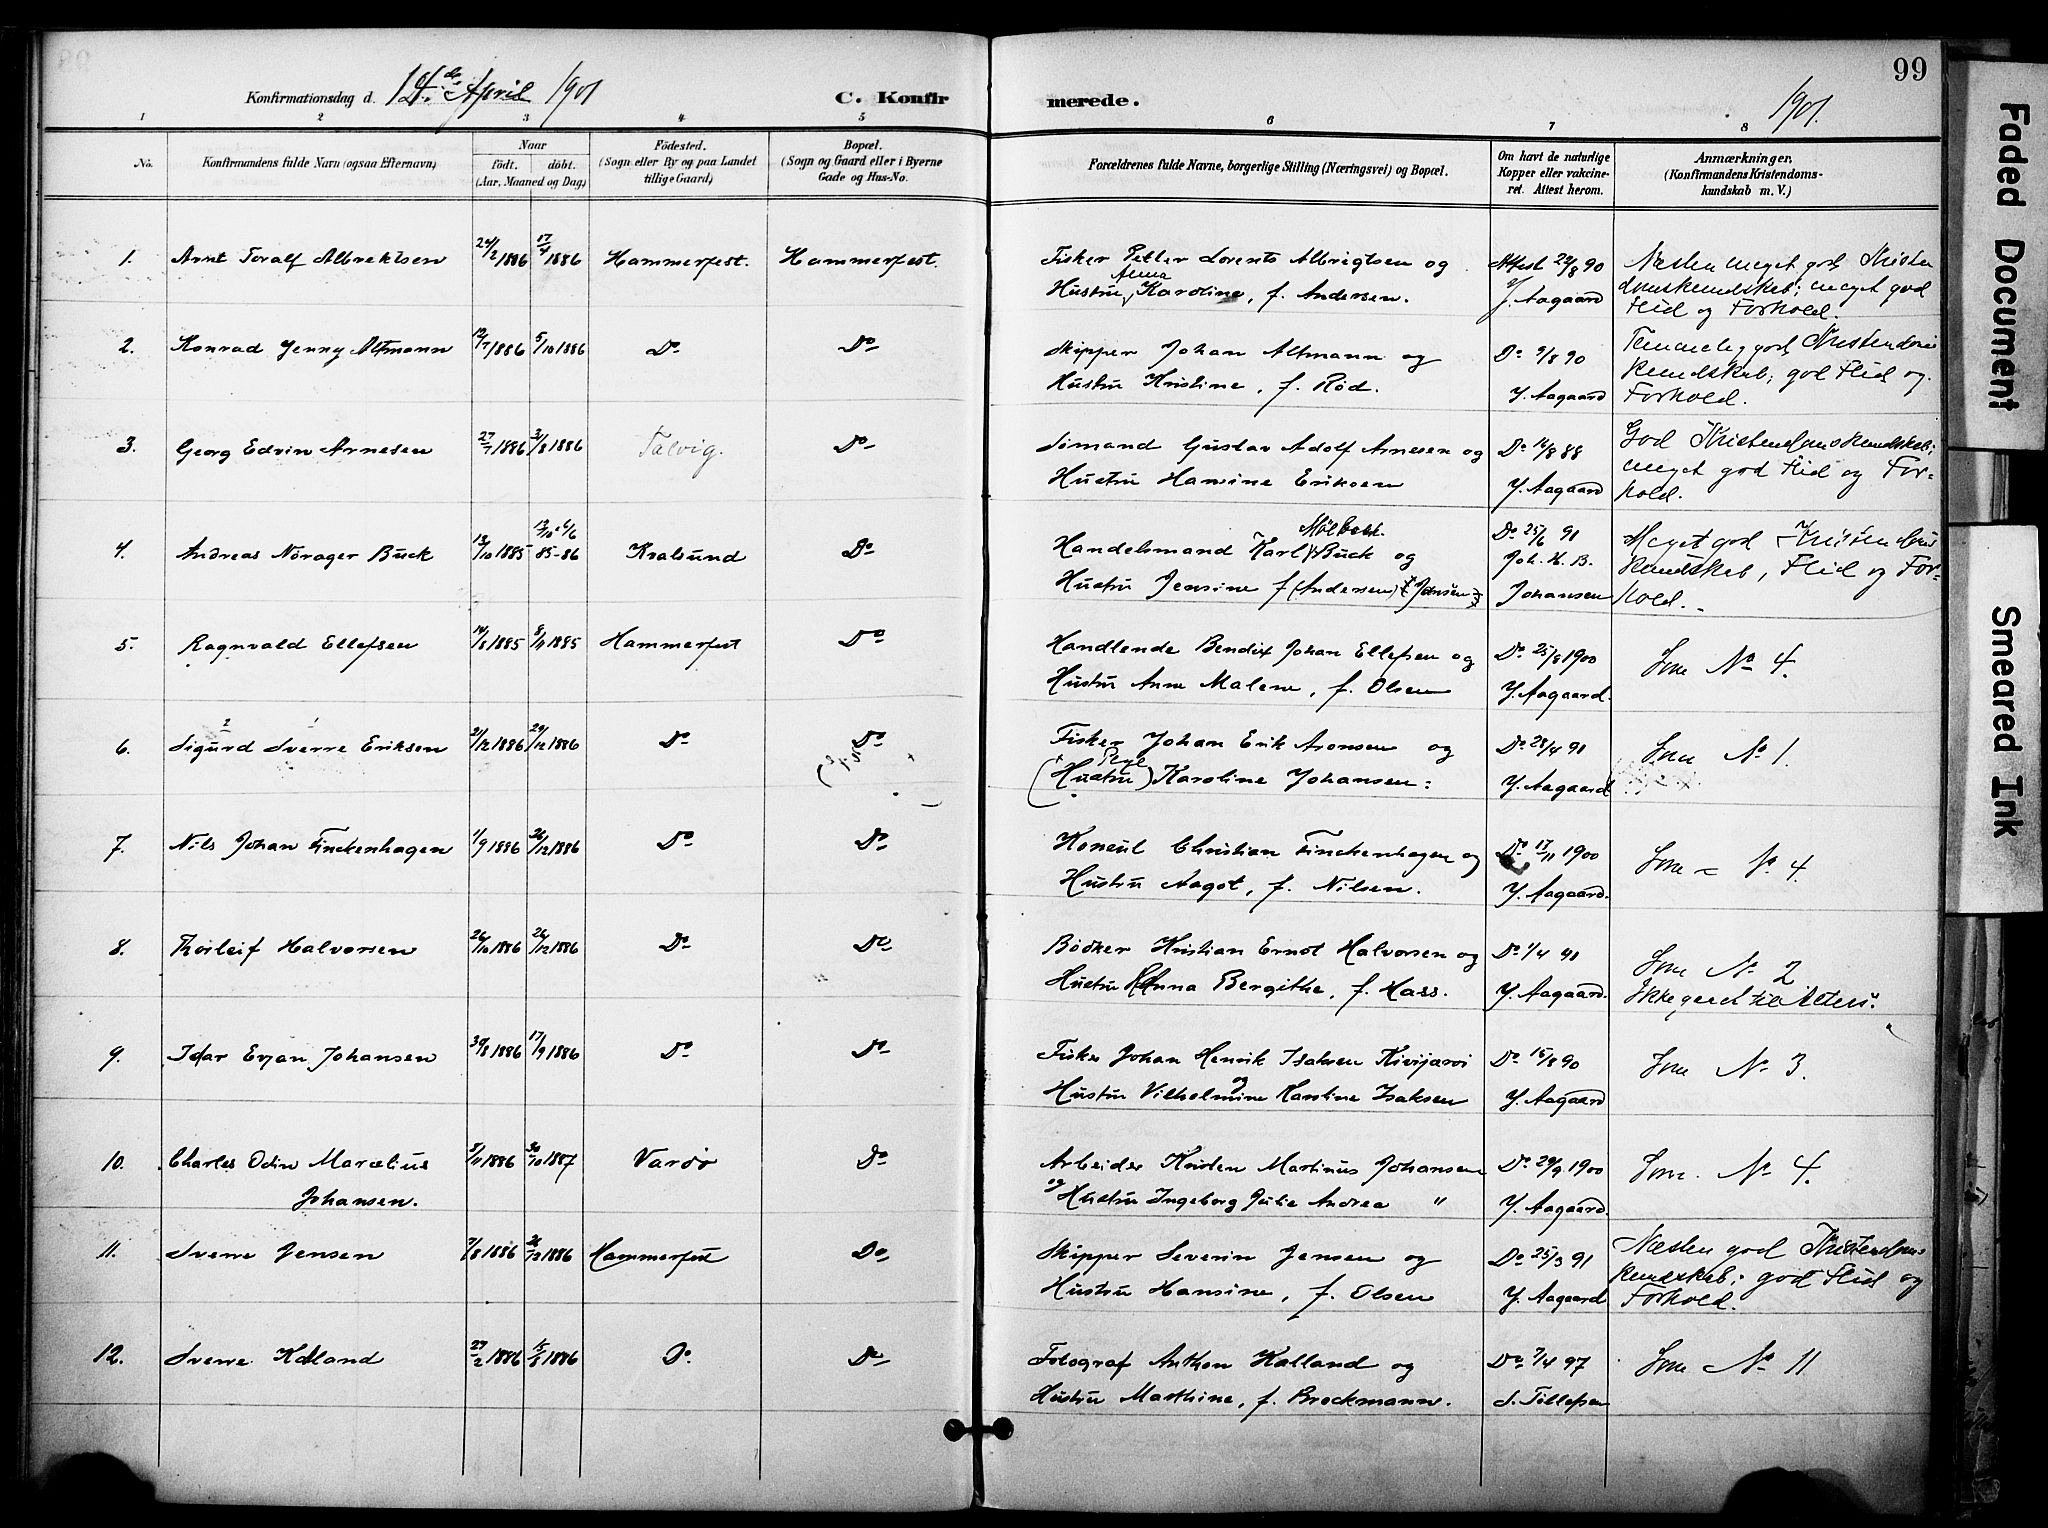 99
Konfirmationsdag d. 14de April 1901 C. Konfirmerede. 1901.
1 2 3 4 5 6 7 8
No. Konfirmandens fulde Navn (ogsaa Efternavn) Naar født. døbt. (Aar, Maaned og Dag) Fødested. (Sogn eller By og paa Landet tillige Gaard) Bopæl. (Sogn og Gaard eller i Byerne Gade og Hus-No. Forældrenes fulde Navne, borgerlige Stilling (Næringsvei) og Bopæl. Om havt de naturlige Kopper eller vakcineret. Attest herom. Anmærkninger. (Konfirmandens Kristendomskundskab m. V.)
1. Arnt Toralf Albrektsen 24/2 1886 17/4 1886 Hammerfest. Hammerfest. Fisker Petter Lorents Albrigtsen og Attest 22/8 90 Næsten meget god Kristen
Hustru Anna Karoline, f. Andersen. J. Aagaard domskundskab; meget god
Flid og Forhold.
2. Konrad Jenny Altmann 12/7 1886 5/10 1886 Do Do Skipper Johan Altmann og Do 9/8 90 Temmelig god Kristendoms
Hustru Kristine, f. Rød. J. Aagaard kundskab; god Flid og
Forhold.
3. Georg Edvin Arnesen 27/7 1886 31/8 1886 Talvig. Do Sømand Gustav Adolf Arnesen og Do 14/8 88 God Kristendomskundskab;
Hustru Hansine Eriksen J. Aagaard meget god Flid og For-
hold.
4. Andreas Norager Buck 13/10 1885 13/10 85 - 6/6 86 Kvalsund Do Handelsmand Karl Møl Buck og Do 25/6 91 Meget god Kristendoms
Hustru Jensine f (Andersen) Jansen Joh. H. B. Johansen kundskab, Flid og For-
hold.
5. Ragnvald Ellefsen 14/8 1885 8/11 1885 Hammerfest Do Handlende Bendix Johan Ellefsen og Do 25/8 1900 Som No 4.
Hustru Anne Malene, f. Olsen J. Aagaard.
6. Sigurd Sverre Eriksen 21/12 1886 29/12 1886 Do Do Fisker Johan Erik Aronsen og Do 28/4 91 Som No 1.
(Hustru) Pige Karoline Johansen: J. Aagaard
7. Nils Johan Finckenhagen 1/9 1886 26/12 1886 Do Do Konsul Christian Finckenhagen og Do 17/11 1900 Som No 4.
Hustru Aagot, f. Nilsen. J. Aagaard.
8. Thorleif Halvorsen 26/10 1886 26/12 1886 Do Do Bødker Kristian Ernst Halvorsen og Do 1/4 91 Som No 2
Hustru Anna Bergithe, f. Hass. J. Aagaard. Ikke gaaet til Alters.
9. Idar Evjan Johansen 30/8 1886 17/9 1886 Do Do Fisker Johan Henrik Isaksen Kivijærvi Do 15/8 90 Som No 3.
og Hustru Vilhelmine Karoline Isaksen J. Aagaard
10. Charles Odin Marcelius 8/11 1886 30/10 1887 Vardø Do Arbeider Kristen Martinus Johansen Do 29/9 1900 Som No 4.
Johansen. og Hustru Ingeborg Julie Andrea " J. Aagaard.
11. Sverre Jensen 7/8 1886 26/12 1886 Hammerfest Do Skipper Severin Jensen og Do 25/3 91 Næsten god Kristendoms
Hustru Hansine, f. Olsen J. Aagaard kundskab; god Flid og
Forhold.
12. Sverre Kalland 27/2 1886 1886 Do Do Fotograf Anthon Kalland og Do 7/4 97 Som No 11
Hustru Marthine, f. Brockmann. S. Tillefsen
Faded Document
Smeared Ink